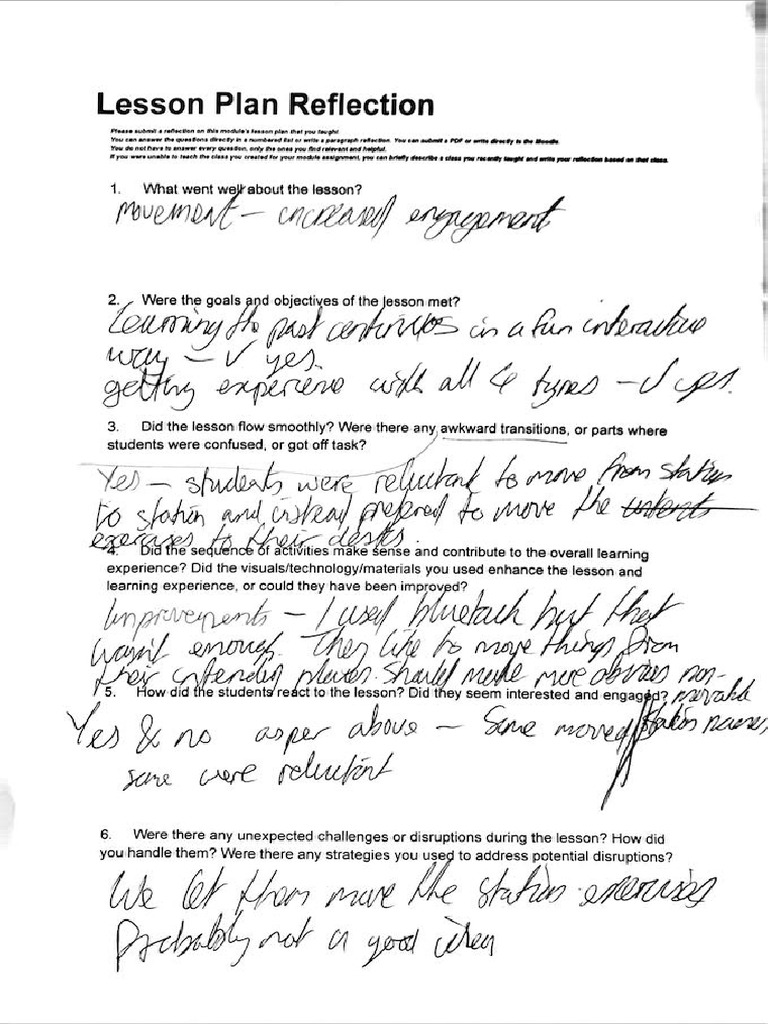 Lesson Plan Reflection
Please submit a reflection on this module's lesson plan that you taught.
You can answer the questions directly in a numbered list or write a paragraph reflection. You can submit a PDF or write directly to the Moodle.
You do not have to answer every question, only the ones you find relevant and helpful.
If you were unable to teach the class you created for your module assignment, you can briefly describe a class you recently taught and write your reflection based on that class.
1. What went well about the lesson?
movement - increased engagement
2. Were the goals and objectives of the lesson met?
Learning the past continuos in a fun interactive
way - ✓ yes.
getting experience with all 4 types - ✓ yes.
3. Did the lesson flow smoothly? Were there any awkward transitions, or parts where
students were confused, or got off task?
Yes - students were reluctant to move from station
to station and instead prefered to move the
exercises to their desks.
4. Did the sequence of activities make sense and contribute to the overall learning
experience? Did the visuals/technology/materials you used enhance the lesson and
learning experience, or could they have been improved?
Improvements - I used bluetack but that
wasn't enough. They like to move things from
their places. Should make more obvious non-
movable
station names
5. How did the students react to the lesson? Did they seem interested and engaged?
Yes & no as per above - Some moved
some were reluctant
6. Were there any unexpected challenges or disruptions during the lesson? How did
you handle them? Were there any strategies you used to address potential disruptions?
We let them move the station exercises
Probably not a good idea